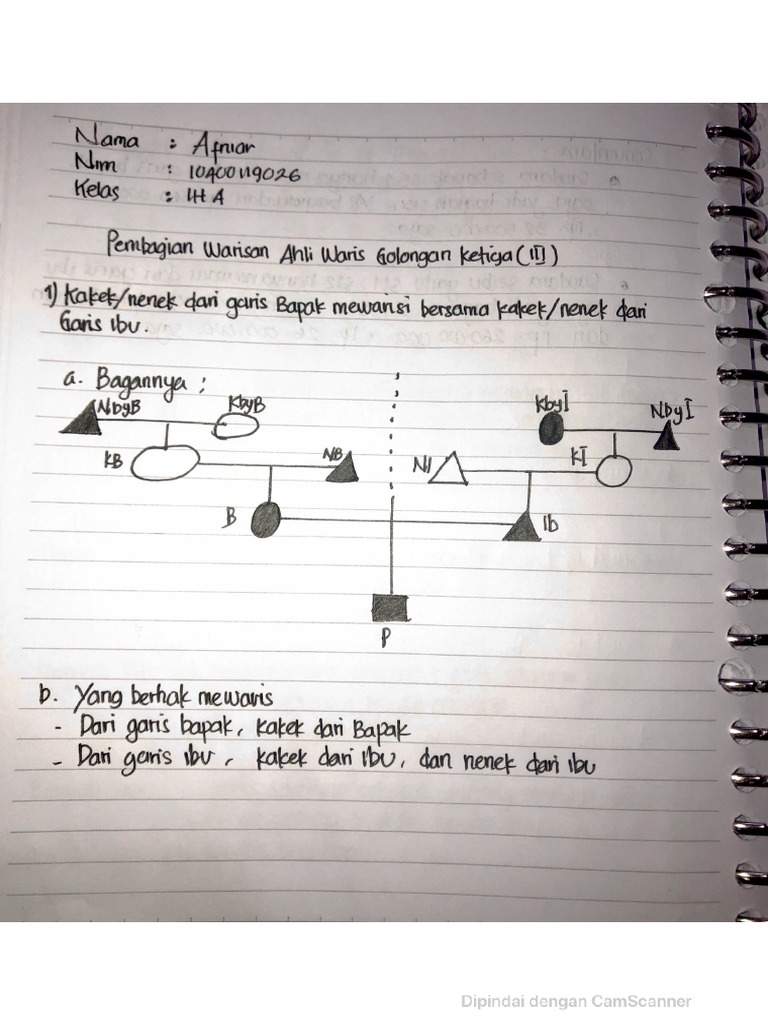 Nama : Afniar
Nim : 10400119026
Kelas : IH A
Pembagian Warisan Ahli Waris Golongan Ketiga (III)
1) Kakek/nenek dari garis Bapak mewarisi bersama kakek/nenek dari
Garis ibu.
a. Bagannya :
NbyB KbyB KbyI NbyI
KB NB NI KI
B Ib
P
b. Yang berhak mewaris
- Dari garis bapak, Kakek dari Bapak
- Dari garis ibu, kakek dari ibu, dan nenek dari ibu
Dipindai dengan CamScanner